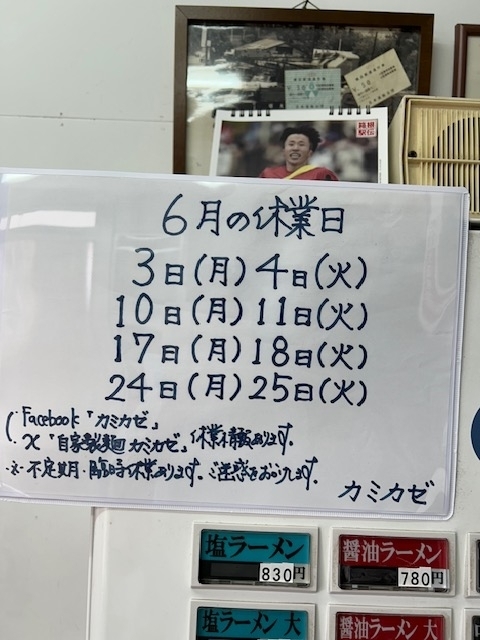 箱根
駅伝
6月の休業日
3日(月)4日(火)
10日(月)11日(火)
17日(月)18日(火)
24日(月)25日(火)
Facebook「カミカゼ」
X「自家製麺カミカゼ」休業情報あります。
※不定期・臨時休業あります。ご迷惑をおかけします。
カミカゼ
塩ラーメン
830円
醤油ラーメン
780円
塩ラーメン 大
醤油ラーメン 大